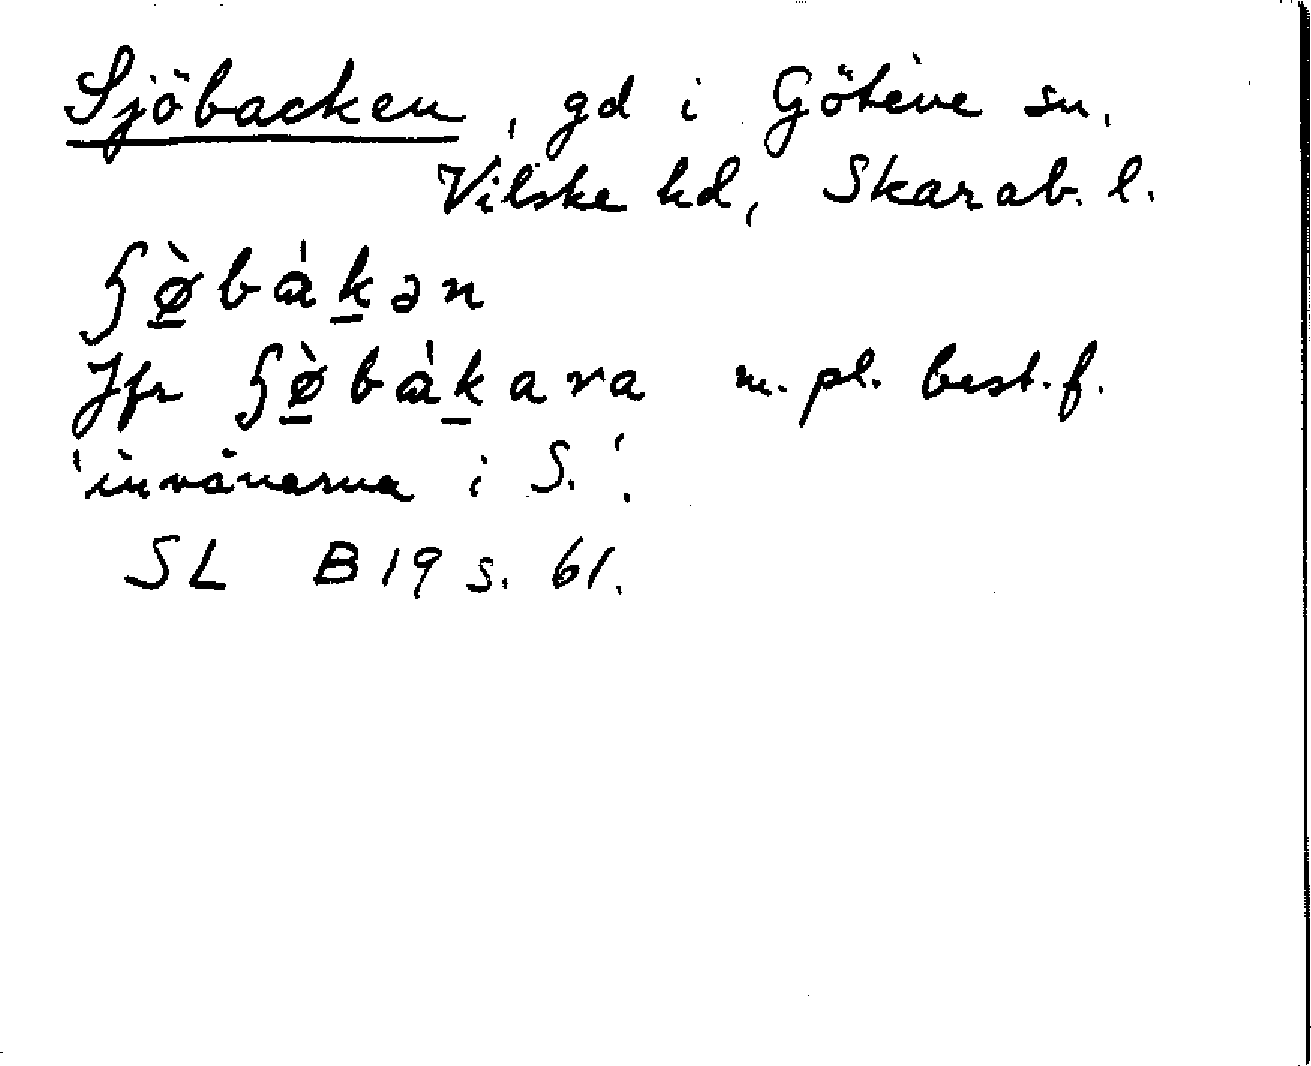 Sjöbacken, gd i Götene sn,
Vilske hd, Skarab. l.
ʃø̠̀bɑ̀k̠ən
Jfr ʃø̠̀bɑ̀k̠ara m. pl. best. f.
'invånarna i S.'.
SL B19 s. 61.